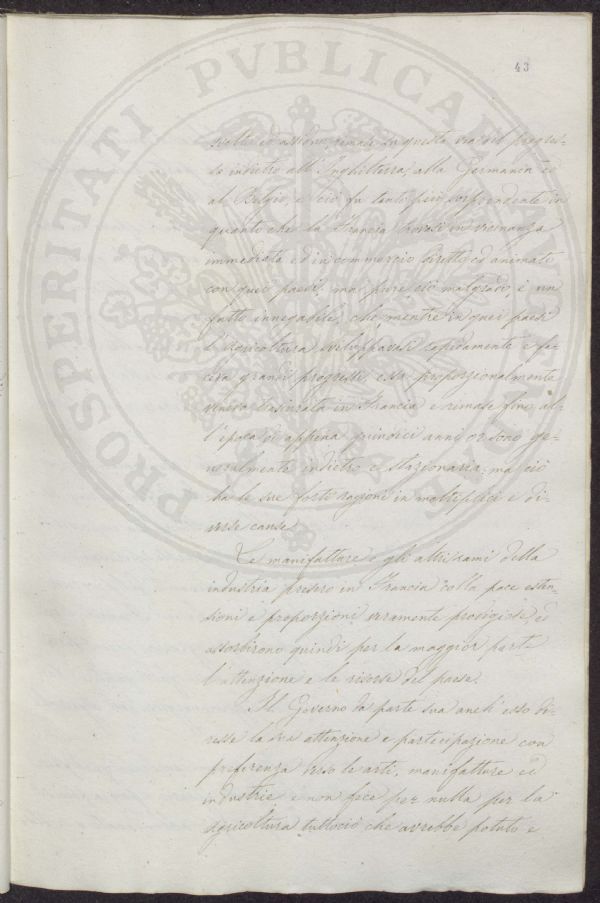 43
ed assidua, rimase in questa via del progres-
so indietro all'Inghilterra, alla Germania ed
al Belgio, e ciò fu tanto più sorprendente in
quanto che la Francia trovasi in vicinanza
immediata ed in commercio diretto ed animato
con quei paesi, ma pure ciò malgrado, è un
fatto innegabile, che, mentre in quei paesi
l'agricoltura sviluppavasi rapidamente e fa-
ceva grandi progressi, essa proporzionalmente
veniva trascurata in Francia e rimase fino al-
l'epoca di appena quindici anni or sono ge-
neralmente indietro e stazionaria; ma ciò
ha le sue forti ragioni in molteplici e di-
verse cause.
Le manifatture e gli altri rami della
industria presero in Francia colla pace esten-
sioni e proporzioni veramente prodigiose, ed
assorbirono quindi per la maggior parte
l'attenzione e le risorse del paese.
Il Governo da parte sua anch'esso di-
resse la sua attenzione e partecipazione con
preferenza verso le arti, manifatture ed
industrie e non fece per nulla per la
agricoltura tuttociò che avrebbe potuto e
PROSPERITATI PVBLICAE AVGENDAE